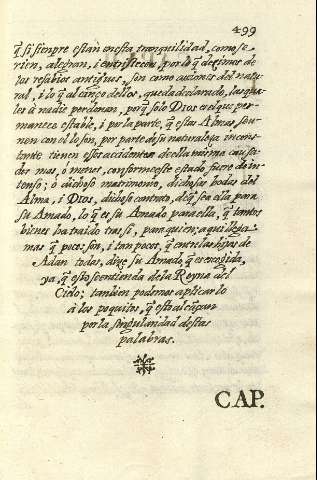 499
q̃ si sienpre estàn en esta tranquilidad, como se
rien, alegran, i entristecen, por lo q̃ deximos de
los resabios antiguos, son como acciones del natu-
ral, i lo q̃ alcanço dellos, queda declarado, las qua-
les à nadie perdonan, porq̃ solo Dios es el que per-
manece estable, i por la parte, q̃ estas Almas, so
nen con el lo son, por parte de su naturaleza incons-
tante tienen esses accidentes de ella misma causa
der mas, ò menos, conforme este estado fuere de in-
tenso; ò dichoso matrimonio, dichosas bodas del
Alma, i Dios, dichoso contrato, del q̃ sea ella para
su Amado, lo q̃ es su Amado para ella, q̃ tantos
bienes ha traido tras sì, para quien; a que llega
mas q̃ pocos son, i tan pocos, q̃ entre las hijas de
Adan todas, dize su Amado q̃ es escogida,
ya, q̃ esto se entienda de la Reyna del
Cielo; tanbien podemos aplicarlo
à los poquitos, q̃ esto alcançan
por la singularidad destas
palabras.
CAP.